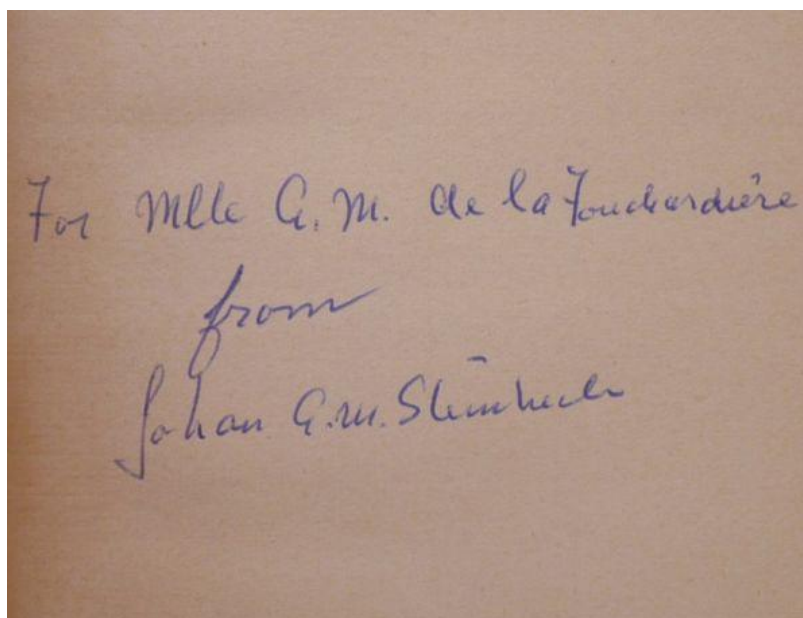 For Mlle G. M. de la Fouchardière
from
Johan G.M.